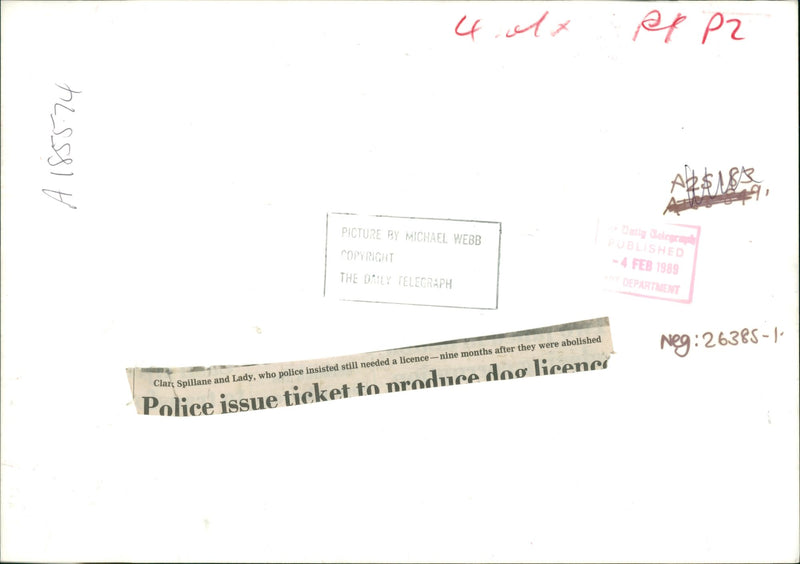 P2
A 1855-74
PICTURE BY MICHAEL WEBB
COPYRIGHT
THE DAILY TELEGRAPH
Daily Telegraph
PUBLISHED
-4 FEB 1989
DEPARTMENT
Neg: 26385-1.
Spillane and Lady, who police insisted still needed a licence—nine months after they were abolished
Police issue ticket to produce dog licence